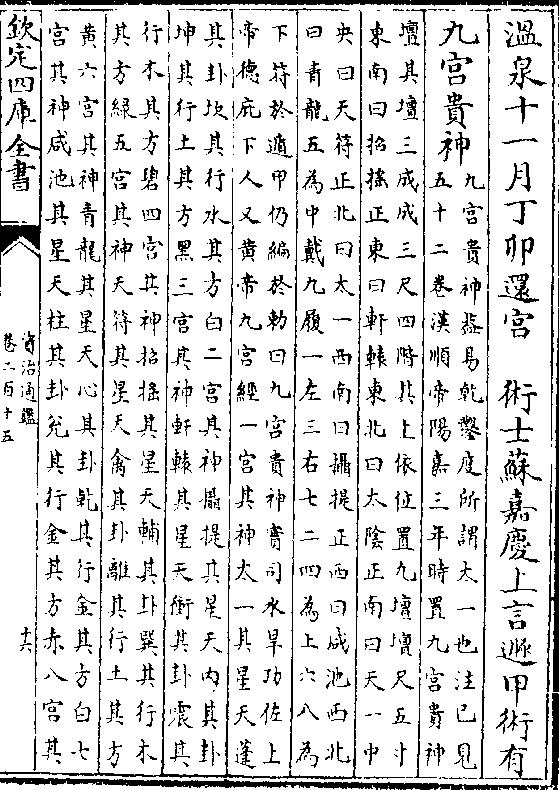 溫泉十一月丁卯還宮　術士蘇嘉慶上言遯甲術有
九宮貴神九宮貴神葢易乾鑿度所謂太一也注已見
五十二卷漢順帝陽嘉三年時置九宮貴神
壇其壇三成成三尺四階其上依位置九壇壇尺五寸
東南曰招搖正東曰軒轅東北曰太陰正南曰天一中
央曰天符正北曰太一西南曰攝提正西曰咸池西北
曰青龍五為中戴九履一左三右七二四為上六八為
下符於遁甲仍編於勅曰九宮貴神實司水旱功佐上
帝德庇下人又黃帝九宮經一宮其神太一其星天蓬
其卦坎其行水其方白二宮其神攝提其星天内其卦
坤其行土其方黑三宮其神軒轅其星天衝其卦震其
行木其方碧四宮其神招搖其星天輔其卦巽其行木
其方綠五宮其神天符其星天禽其卦離其行土其方
黃六宮其神青龍其星天心其卦乾其行金其方白七
宮其神咸池其星天柱其卦兌其行金其方赤八宮其
欽定四庫全書
資治通鑑
卷二百十五
十六